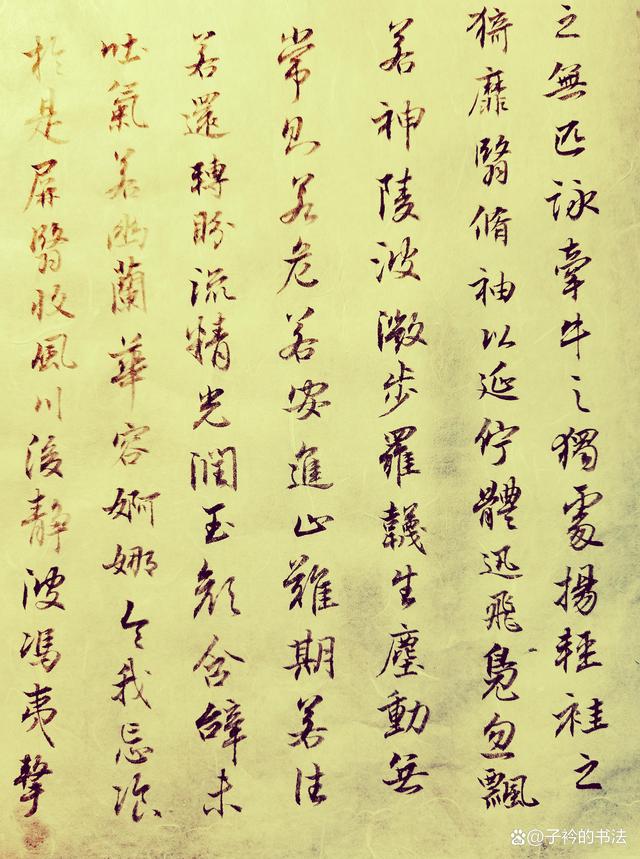 之無匹詠牽牛之獨處揚輕袿之
猗靡翳脩袖以延佇體迅飛鳧忽飄
若神陵波微步羅韈生塵動無
常則若危若安進止難期若往
若還轉盼流精光潤玉顏含辭未
吐氣若幽蘭華容婀娜令我忘飡
於是屏翳收風川後靜波馮夷擊
@子衿的书法